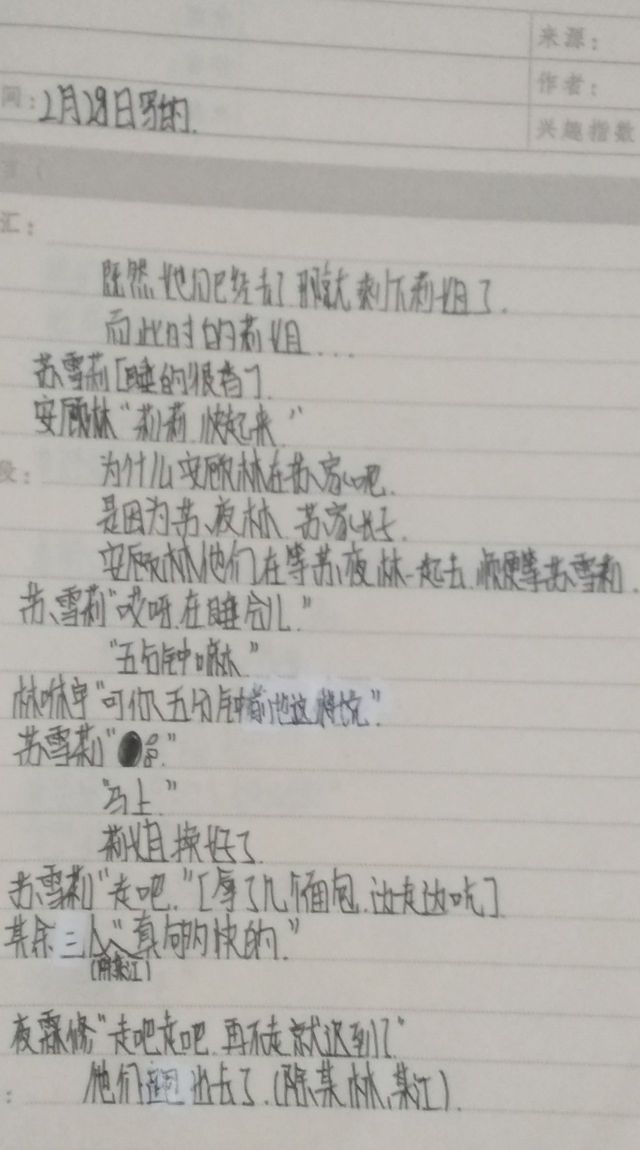 来源：
作者：
间：2月28日写的.
兴趣指数
汇：
既然他们已经去了那就剩下莉姐了.
而此时的莉姐...
苏雪莉[睡的很香]
安顾林“莉莉,快起来”
为什么安顾林在苏家呢.
段：
是因为苏夜林 苏家
安顾林他们在等苏夜林一起去,顺便等苏雪莉.
苏雪莉“哎呀,在睡会儿”
“五分钟嘛”
林咻宇“可你五分钟前也这样说”
苏雪莉“ ”
“马上.”
莉姐换好了
苏雪莉“走吧.”[拿了几个面包,边走边吃]
其余三人“真够的快的.”
夜霖修“走吧走吧,再不走就迟到了”
他们也去了.(除某林,某江).